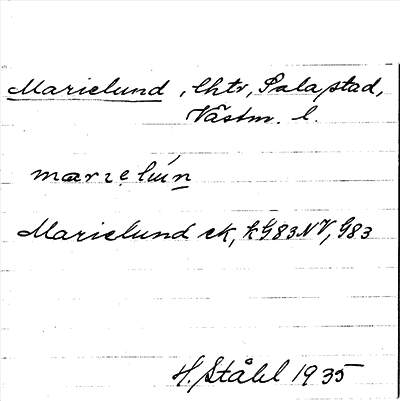 Marielund, lhtr, Sala stad,
Västm. l.
marıe̩lún
Marielund ek, k G83NV, G83
H. Ståhl 1935